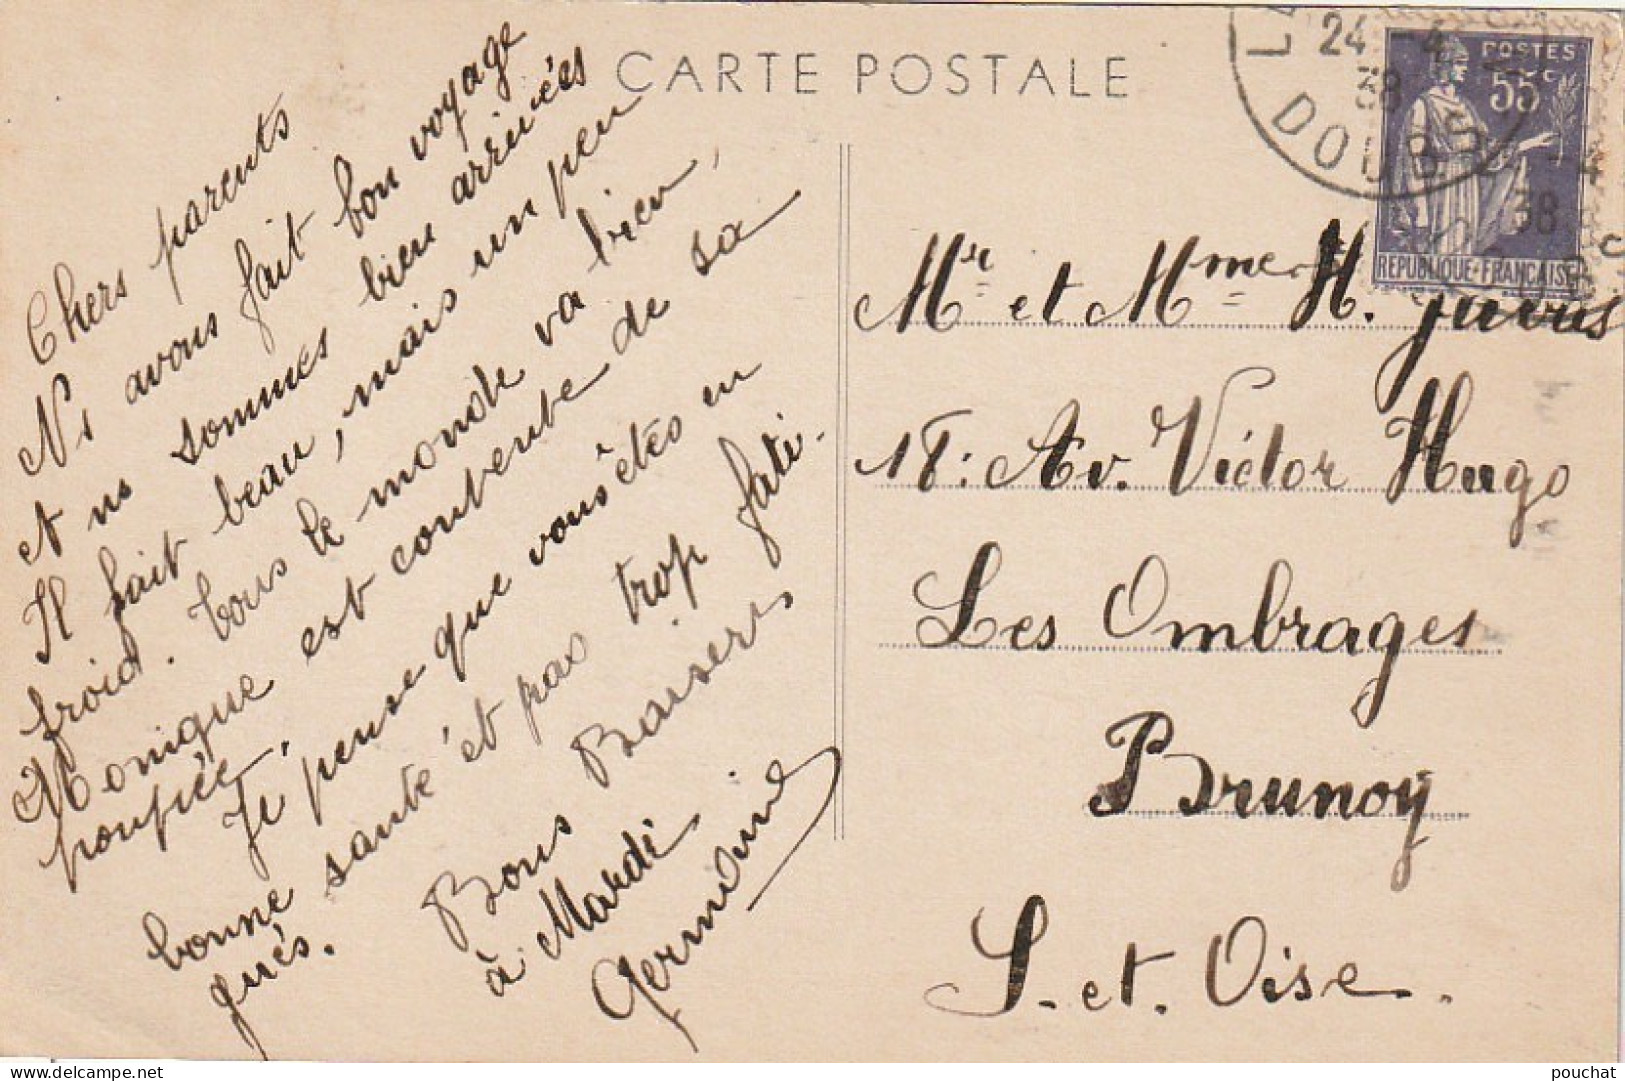 CARTE POSTALE
Chers parents
Ns avons fait bon voyage
et ns sommes bien arrivées
Il fait beau, mais un peu
froid. Tous le monde va bien,
Monique est contente de sa
poupée. Je pense que vous êtes en
bonne santé et pas trop fati-
gués.
Bons Baisers
à Mardi
Germaine
24 -4
38
DOUBS
POSTES
55c
REPUBLIQUE-FRANÇAISE
-4
38
Mr et Mme H.
18: Av. Victor Hugo
Les Ombrages
Brunoy
S. et. Oise.
pouchat